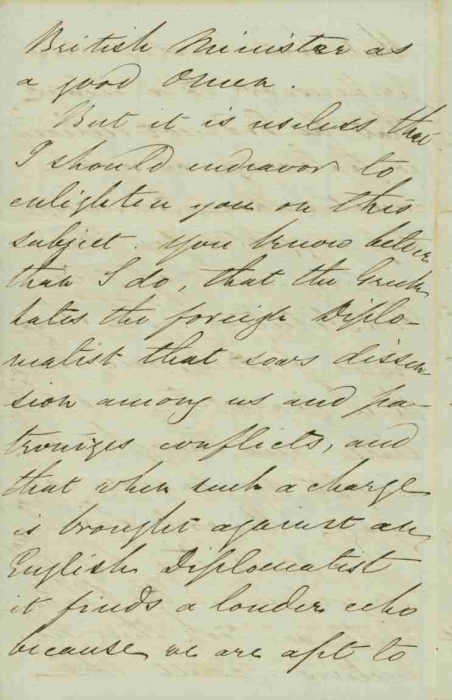 British Minister as
a good Omen.
But it is useless that
I should endeavor to
enlighten you on this
subject. You know better
than I do, that the Greek
hates the foreign Diplo-
matist that sows dissen-
sion among us and pa-
tronizes conflicts, and
that when such a charge
is brought against an
English Diplomatist
it finds a louder echo
because we are apt to